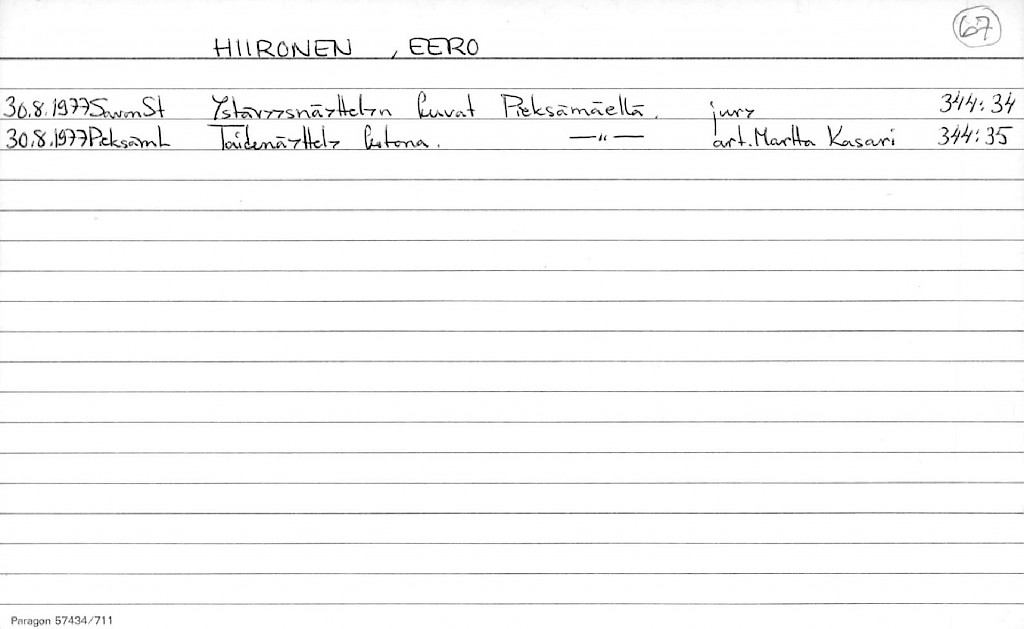 67
HIIRONEN , EERO
30.8.1977 SavonSt Ystävyysnäyttelyn kuvat Pieksämäellä. jury 344:34
30.8.1977 PieksämL Taidenäyttely kutona. —"— art. Martta Kasari 344:35
Paragon 57434/711